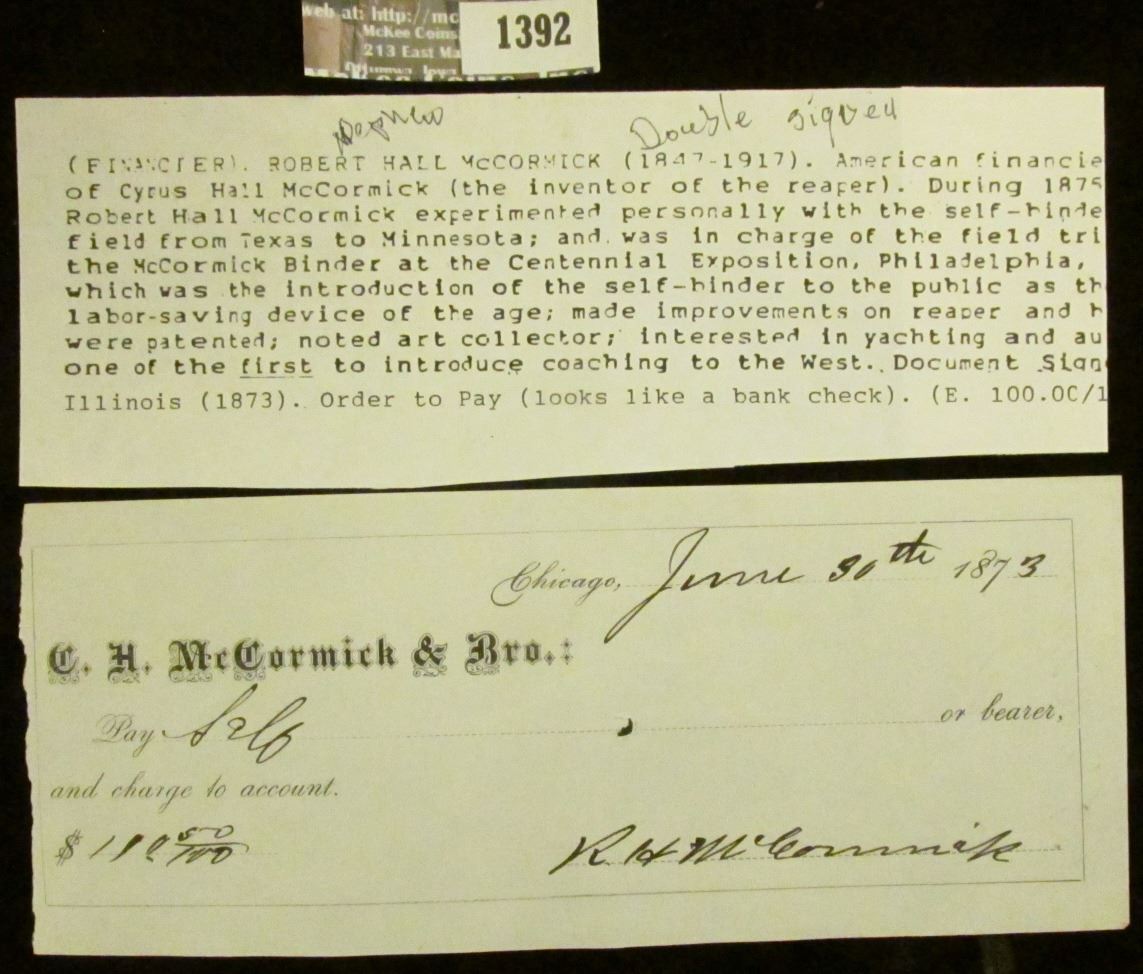 web at: http://mc
McKee Coins
213 East Ma
Ottumwa, Iowa
1392
Nephew
Double signed
(FINANCIER). ROBERT HALL McCORMICK (1847-1917). American financie
of Cyrus Hall McCormick (the inventor of the reaper). During 1875
Robert Hall McCormick experimented personally with the self-binde
field from Texas to Minnesota; and was in charge of the field tri
the McCormick Binder at the Centennial Exposition, Philadelphia,
which was the introduction of the self-binder to the public as th
labor-saving device of the age; made improvements on reaper and h
were patented; noted art collector; interested in yachting and au
one of the first to introduce coaching to the West. Document Sign
Illinois (1873). Order to Pay (looks like a bank check). (E. 100.00/1
Chicago, June 30th 1873
C. H. McCormick & Bro.:
Pay Self or bearer,
and charge to account.
$ 110 50/100
R H McCormick